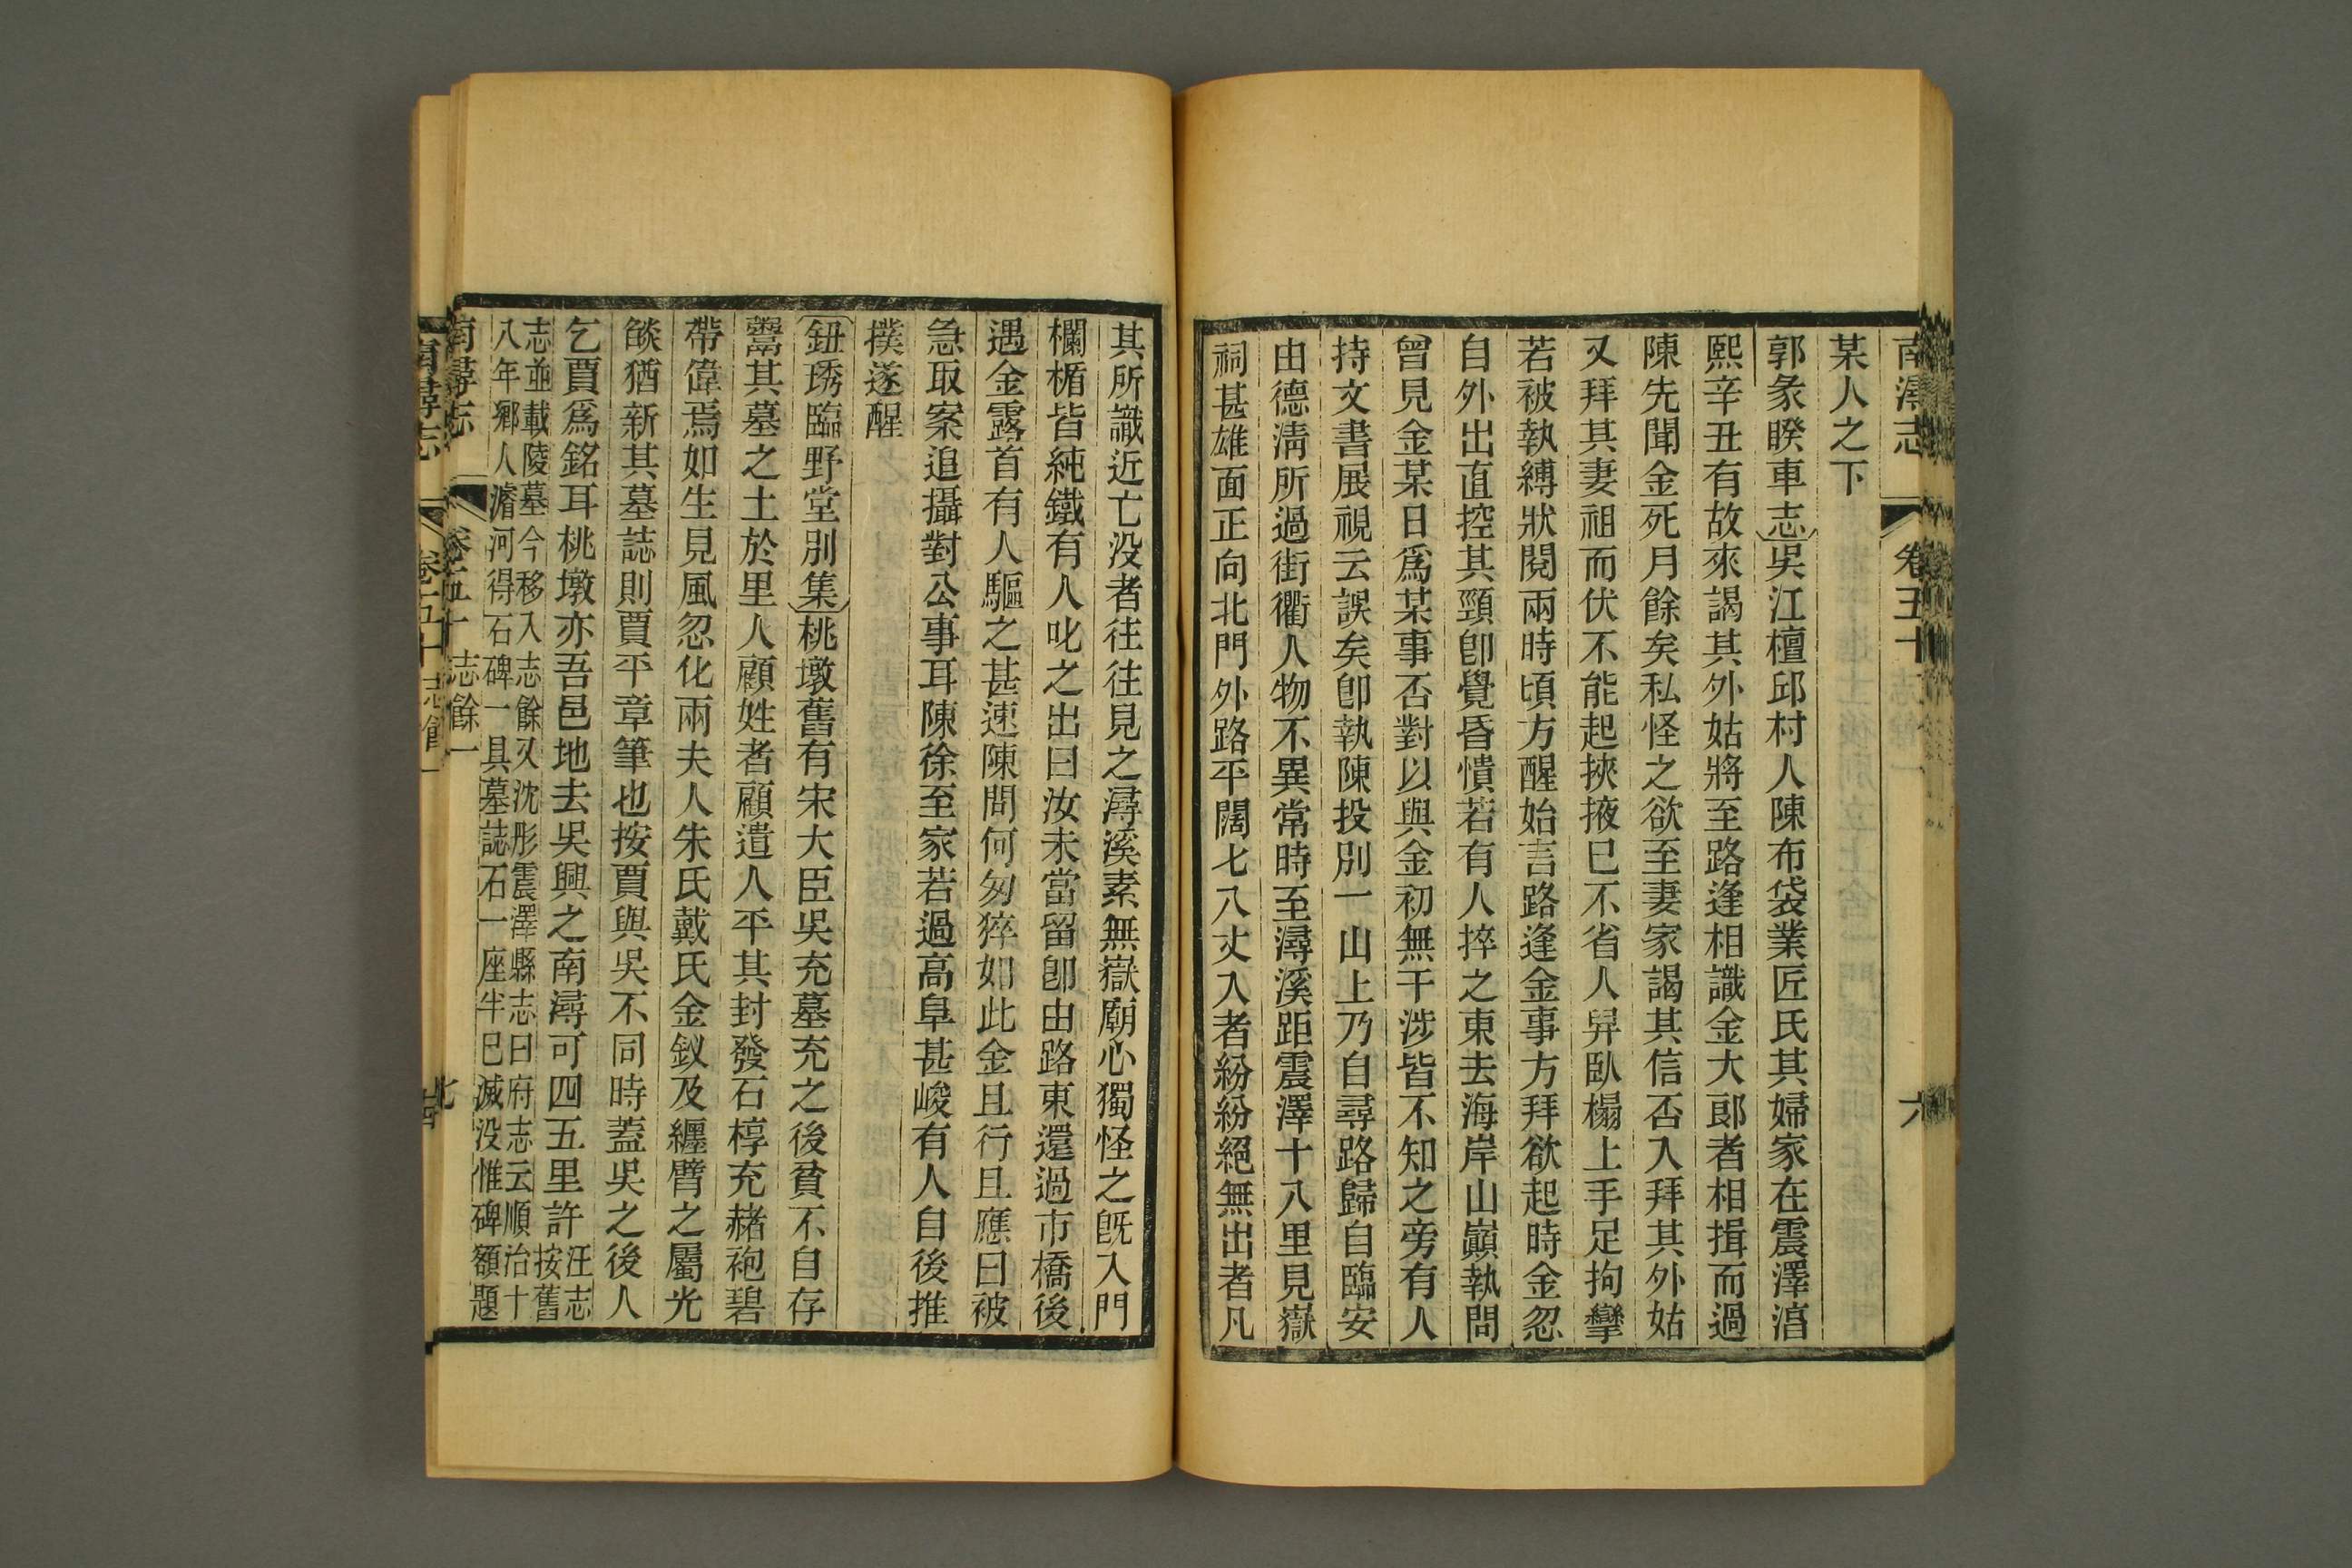 南潯志 卷五十 六
某人之下
郭彖睽車志吳江檀邱村人陳布袋業匠氏其婦家在震澤湻
熙辛丑有故來謁其外姑將至路逢相識金大郎者相揖而過
陳先聞金死月餘矣私怪之欲至妻家謁其信否入拜其外姑
又拜其妻祖而伏不能起挾掖巳不省人舁臥榻上手足拘攣
若被執縛狀閱兩時頃方醒始言路逢金事方拜欲起時金忽
自外出直控其頸卽覺昏憒若有人捽之東去海岸山巔執問
曾見金某日爲某事否對以與金初無干涉皆不知之旁有人
持文書展視云誤矣卽執陳投別一山上乃自尋路歸自臨安
由德淸所過街衢人物不異常時至潯溪距震澤十八里見嶽
祠甚雄面正向北門外路平闊七八丈入者紛紛絕無出者凡
其所識近亡没者往往見之潯溪素無嶽廟心獨怪之旣入門
欄楯皆純鐵有人叱之出曰汝未當留卽由路東還過市橋後
遇金露首有人驅之甚速陳問何匆猝如此金且行且應曰被
急取案追攝對公事耳陳徐至家若過高阜甚峻有人自後推
撲遂醒
鈕琇臨野堂別集桃墩舊有宋大臣吳充墓充之後貧不自存
鬻其墓之土於里人顧姓者顧遣人平其封發石椁充赭袍碧
帶偉焉如生見風忽化兩夫人朱氏戴氏金釵及纏臂之屬光
燄猶新其墓誌則賈平章筆也按賈與吳不同時蓋吳之後人
乞賈爲銘耳桃墩亦吾邑地去吳興之南潯可四五里許汪志按舊
志並載陵墓今移入志餘又沈彤震澤縣志曰府志云順治十
八年鄉人濬河得石碑一具墓誌石一座半巳滅没惟碑額題
南潯志 卷五十 志餘一
南潯志 卷五十 志餘一